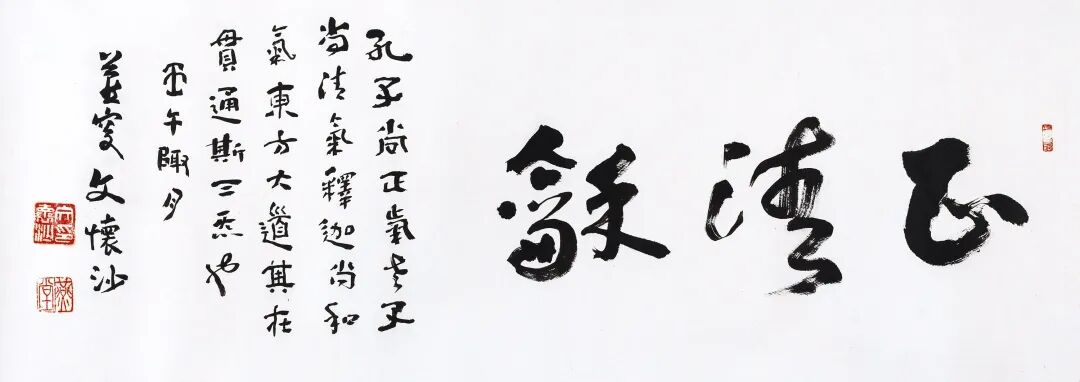 正清龢
孔子尚正氣老子
尚清氣釋迦尚和
氣東方大道其在
貫通斯三炁也
午陬月
燕叟文懷沙